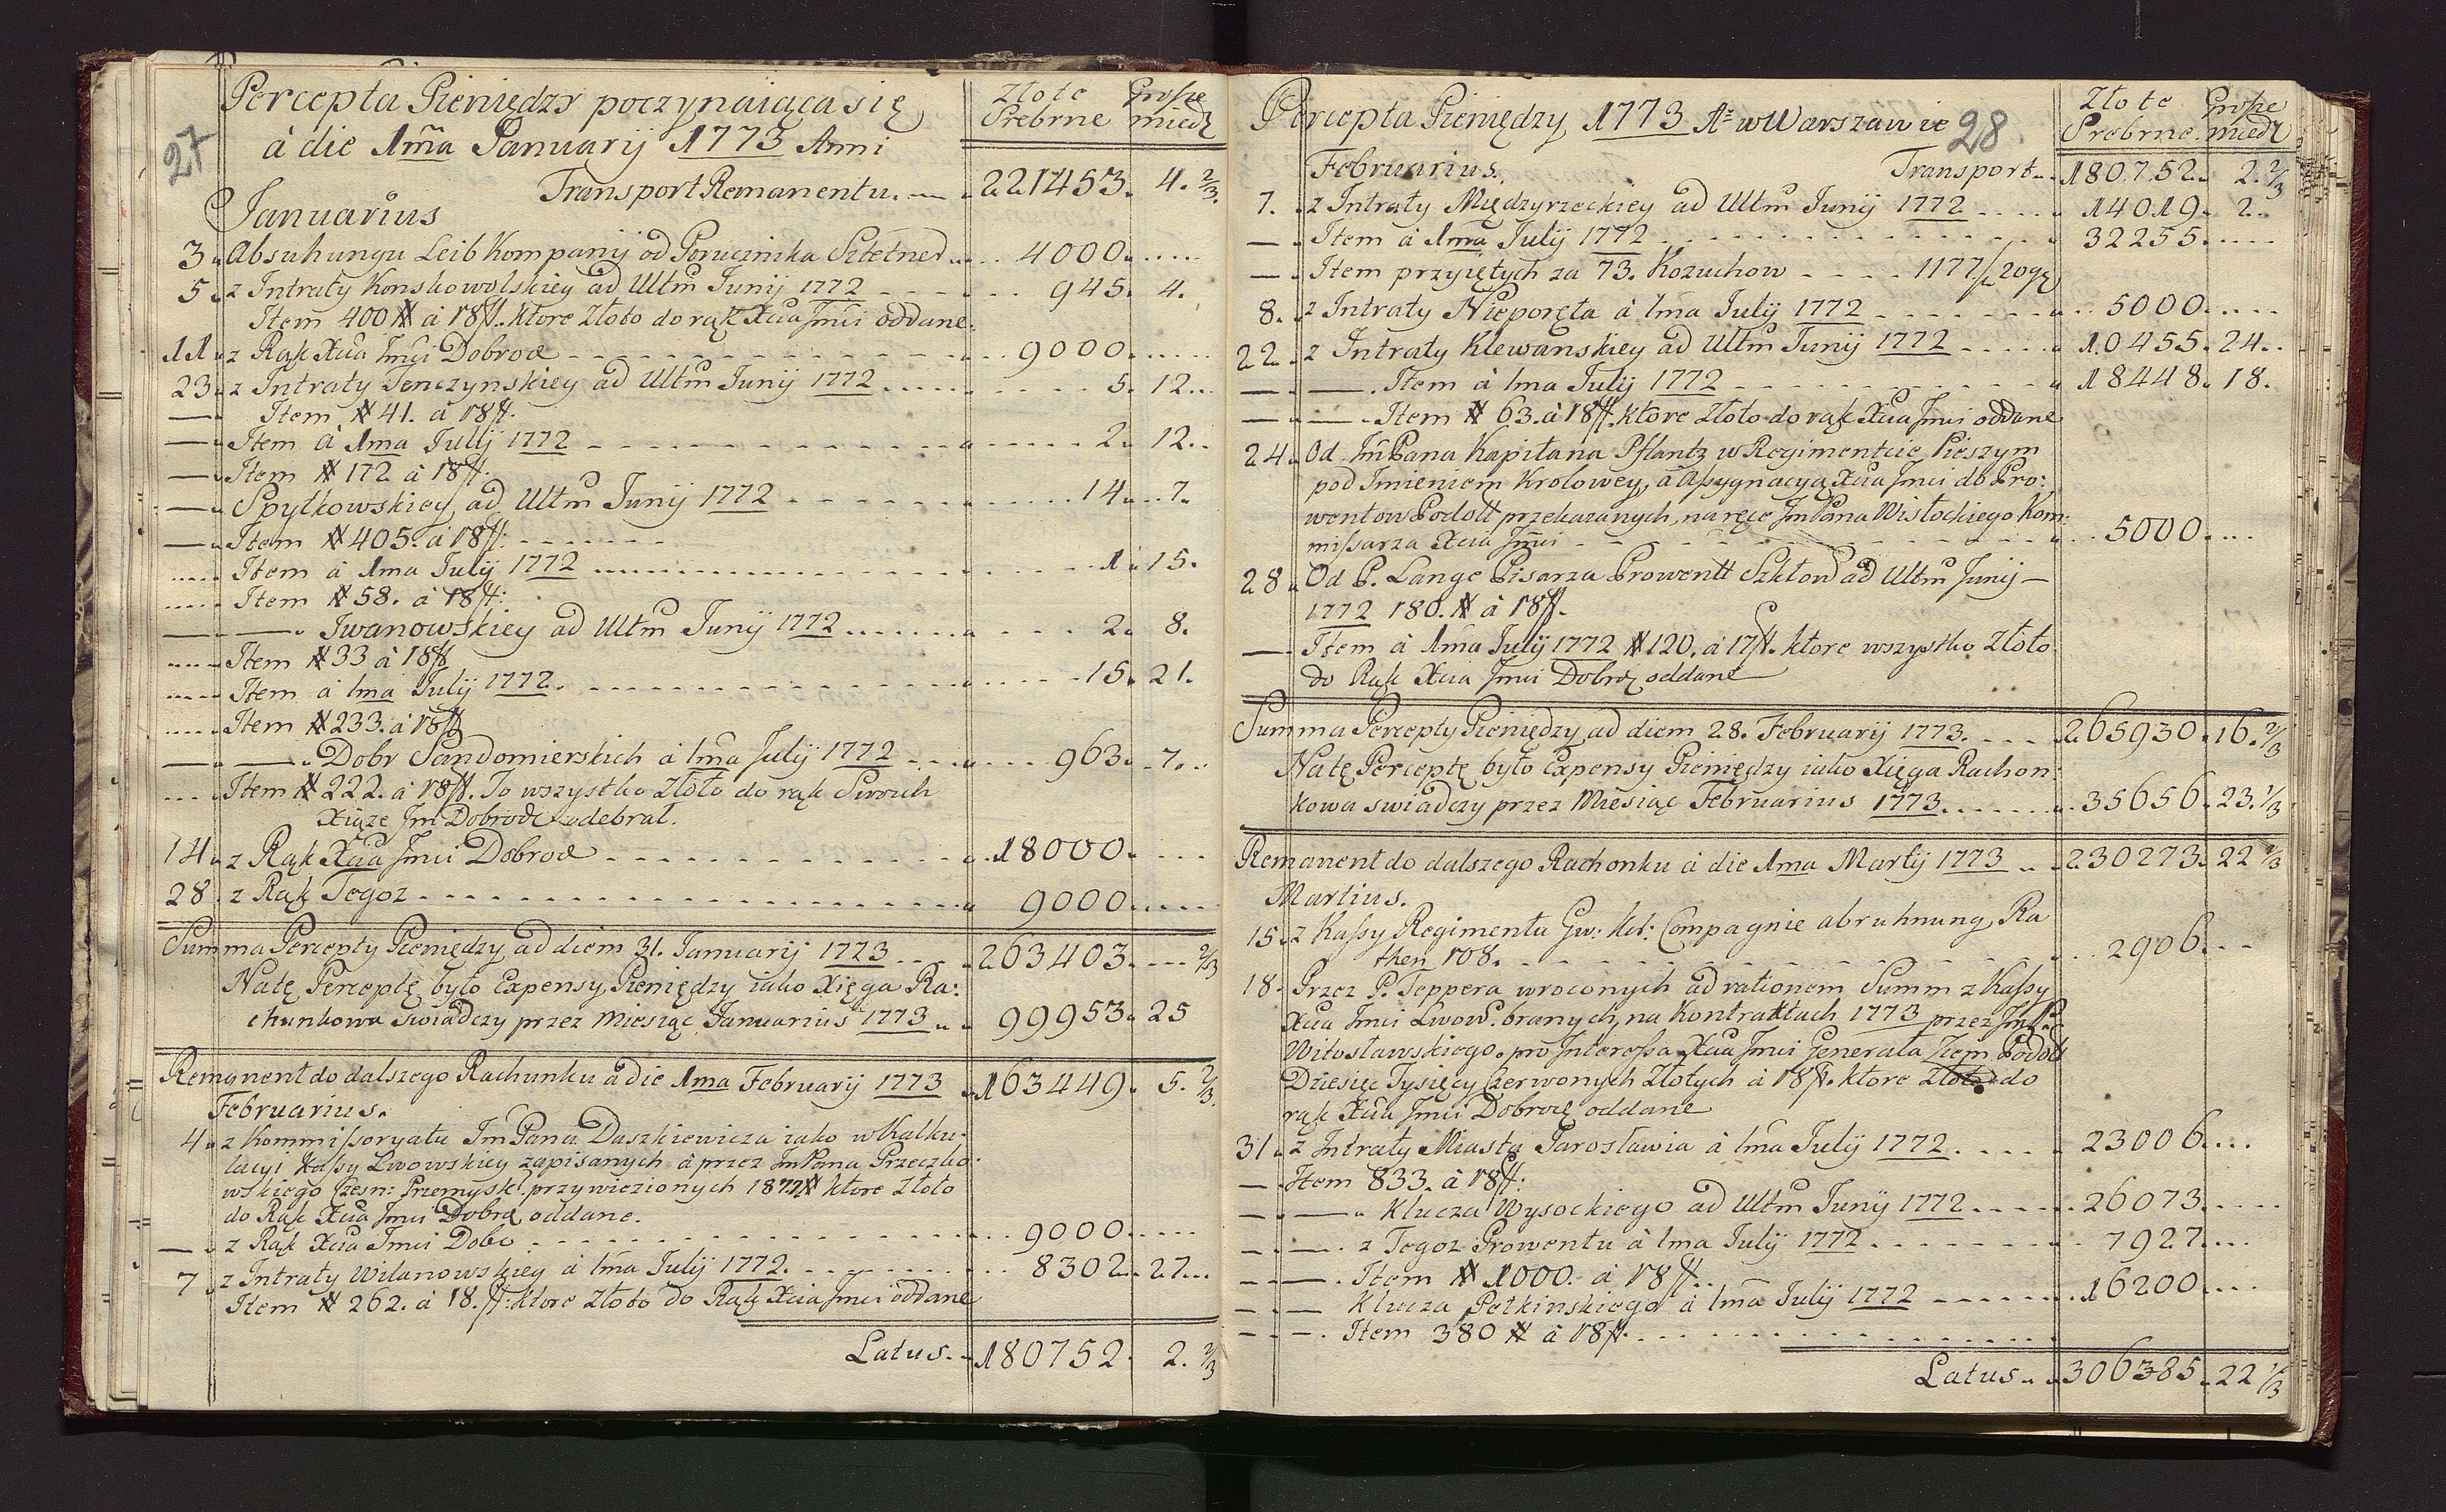 Percepta Pieniędzy poczynaiąca się Złote Grosze
27 à die 1ma Januarij 1773 Anni Srebrne miedz
Transport Remanentu. 221453. 4. 2/3
Januarius
3 Absuhungu Leib Kompanij od Porucznika Sztetner 4000
5 z Intraty Konskowolskiey ad Ultm Junij 1772 945. 4.
Item 400 # à 18 fl. ktore Złoto do rąk Xcia Jmci oddane
11 z Rąk Xcia Jmci Dobrod 9000
23 z Intraty Tenczynskiey ad Ultm Junij 1772 5. 12
— Item # 41. à 18 fl.
— Item à 1ma Julij 1772 2. 12
— Item # 172 à 18 fl.
— Spytkowskiey ad Ultm Junij 1772 14. 7.
— Item # 405. à 18 fl:
Item à 1ma Julij 1772 1. 15.
Item # 58. à 18 fl:
— —. Iwanowskiey ad Ultm Junij 1772 2. 8.
Item # 33 à 18 fl
Item à 1ma Julij 1772. 15. 21.
Item # 233. à 18 fl
— —. Dobr Sandomierskich à 1ma Julij 1772 963. 7.
Item # 222. à 18 fl. To wszystko Złoto do rąk Swoich
Xiąze Jm Dobrodz odebrał.
14 z Rąk Xcia Jmci Dobrod 18000
28. z Rąk Tegoz 9000
Summa Percepty Pieniędzy ad diem 31. Januarij 1773 263403. 2/3
Natę Perceptę było Expensy Pieniędzy iako Xięga Ra:
chunkowa swiadczy przez Miesiąc Januarius 1773 99953. 25
Remanent do dalszego Rachunku à die 1ma Februarij 1773 163449. 5. 2/3
Februarius.
4 z Kommissoryatu Jm Pana Daszkiewicza iako w Kalku:
lacyi Kassy Lwowskiey zapisanych à przez Jm Pana Przeczko:
wskiego Czesn: Przemysk: przywiezionych 1877 # ktore Złoto
do Rąk Xcia Jmci Dobrd oddane.
— z Rąk Xcia Jmci Dobo 9000
7 z Intraty Wilanowskiey à 1ma Julij 1772. 8302. 27
Item # 262. à 18. fl: ktore Złoto do Rąk Xcia Jmci oddane
Latus. 180752. 2. 2/3
Percepta Pieniędzy 1773 Ao w Warszawie 28. Złote Grosze
Srebrne miedz
Februarius. Transport. 180752. 2. 2/3
7. z Intraty Międzyrzeckiey ad Ultm Junij 1772 14019. 2.
— Item à 1ma Julij 1772 32255
— Item przyiętych za 73. Kozuchow 1177 fl 20 gr
8. z Intraty Nieporęta à 1ma Julij 1772 5000
22. z Intraty Klewanskiey ad Ultm Junij 1772 10455. 24
— —. Item à 1ma Julij 1772 18448. 18.
— —. Item # 63. à 18 fl. ktore Złoto do rąk Xcia Jmci oddane
24. Od Jm Pana Kapitana Pflantz w Regimentcie Pieszym
pod Jmieniem Krolowey, à Assygnacyą Xcia Jmci do Pro:
wentow Podoll przekazanych, na ręce Jm Pana Wisłockiego Kom:
missarza Xcia Jmci 5000
28. Od P. Lange Pisarza Prowentt Szkłow ad Ultm Junij —
1772 180. # à 18 fl.
— Item à 1ma Julij 1772 # 120. à 17 fl. ktore wszystko Złoto
do Rąk Xcia Jmci Dobrdz oddane
Summa Percepty Pieniędzy ad diem 28. Februarij 1773. 265930. 16. 2/3
Natę Perceptę było Expensy Pieniędzy iako Xięga Rachon:
kowa swiadczy przez Miesiąc Februarius 1773. 35656. 23. 1/3
Remanent do dalszego Rachonku à die 1ma Martij 1773 230273. 22 1/3
Martius.
15. z Kassy Regimentu Gw: Kor: Compagnie abruhnung Ra
then 108. 2906
18. Przez P. Teppera wroconych ad rationem Summ z Kassy
Xcia Jmci Lwow. branych, na Kontraktach 1773 przez Jm P.
Witosławskiego. pro Interessa Xcia Jmci Generała Ziem Podols
Dziesięc Tysięcy Czerwonych Złotych à 18 fl. ktore Złoto do
rąk Xcia Jmci Dobrodz oddane
31. z Intraty Miasta Jarosławia à 1ma Julij 1772. 23006
— Item 833. à 18 fl:
— —. Klucza Wysockiego ad Ultm Junij 1772 26073
— —. z Tegoz Prowentu à 1ma Julij 1772 7927
— —. Item # 1000. à 18 fl.
— — Klucza Pełkinskiego à 1ma Julij 1772 16200
— —. Item 380 # à 18 fl.
Latus. 306385. 22 1/3